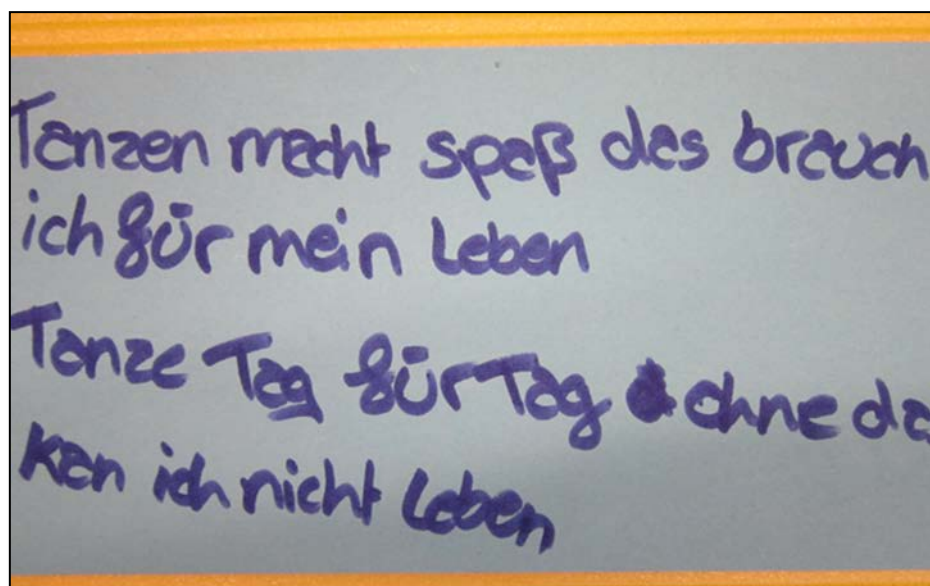 Tanzen macht spaß das brauch
ich für mein Leben
Tanze Tag für Tag ohne da
kan ich nicht Leben